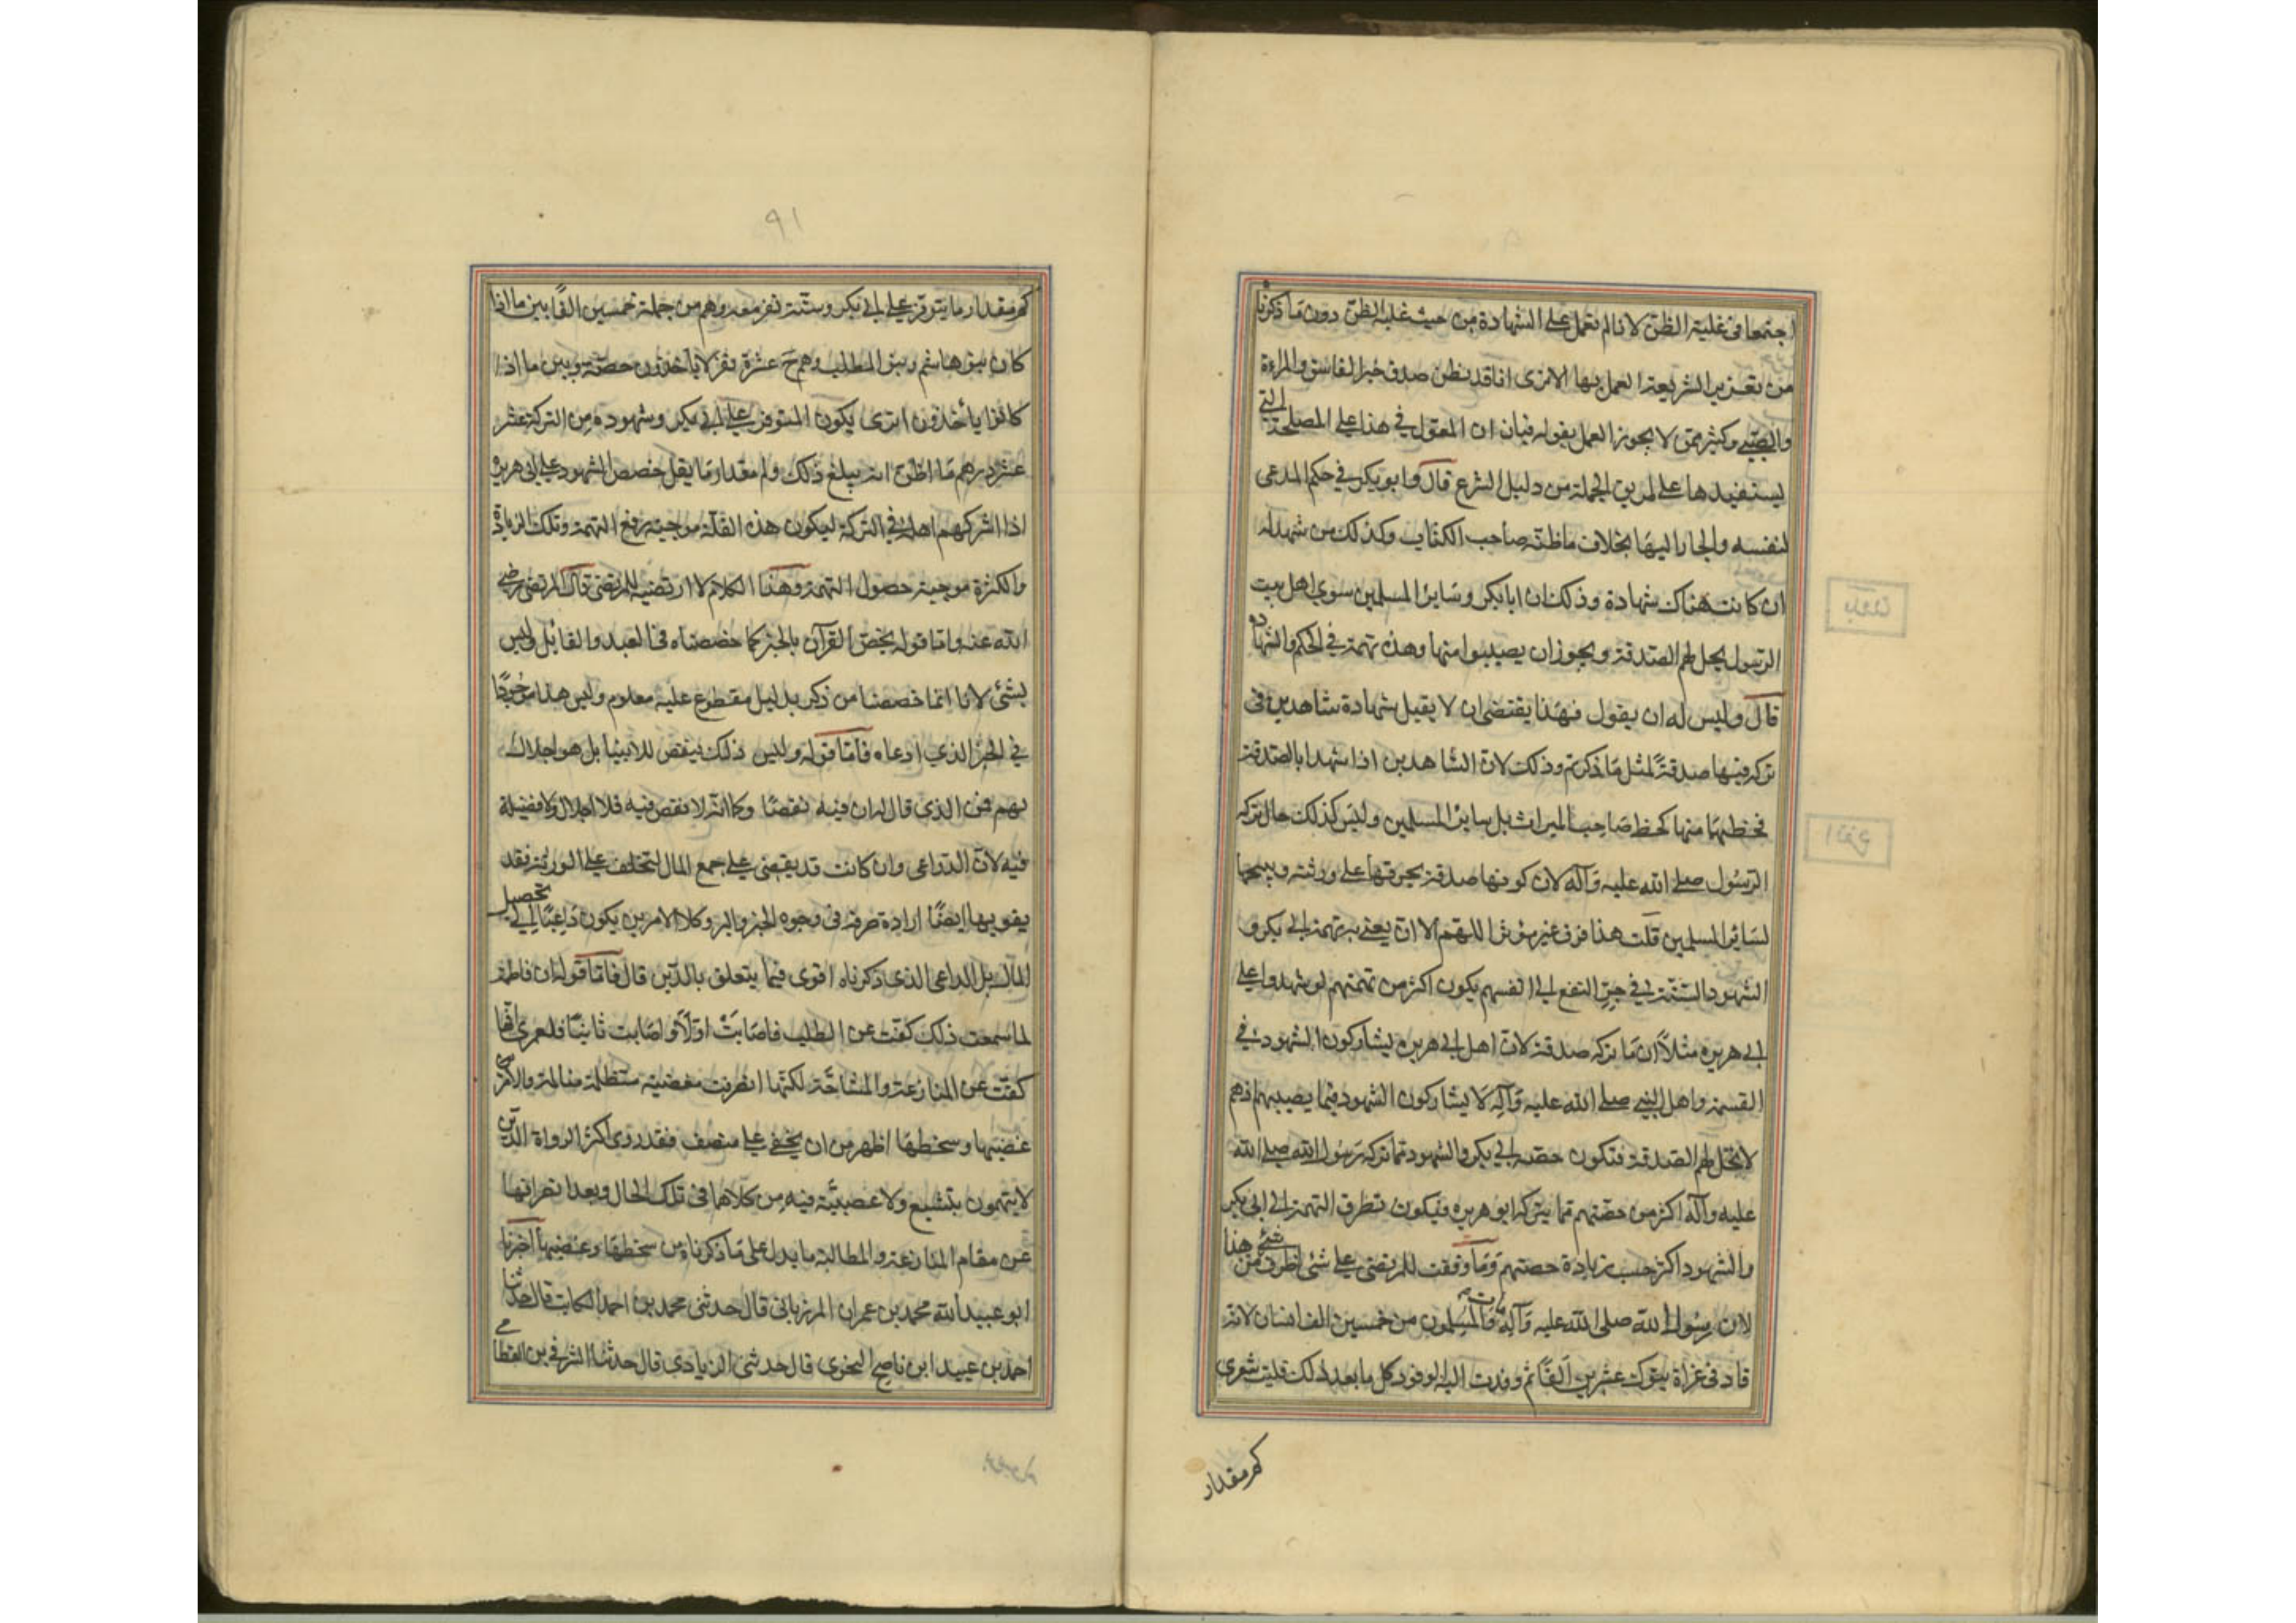 اجتمعا في غلبة الظن لانا لم نعمل على الشهادة من حيث غلبة الظن دون ما ذكرنا
من تقرير الشريعة العمل بها الا ترى انا قد نظن صدق خبر الفاسق والمراءة
والصبي وكثير ممن لا يجوز العمل بقوله فبان ان المعول في هذا على المصلحة التي
يستفيدها على طريق الجملة من دليل الشرع قال وابو بكر في حكم المدعى
لنفسه والجار اليها بخلاف ما ظنه صاحب الكتاب وكذلك من شهد له
ان كانت هناك شهادة وذلك ان ابا بكر وساير المسلمين سوى اهل بيت
الرسول يحل لهم الصدقة ويجوز ان يصيبوا منها وهذه تهمة في الحكم والشهادة
قال وليس له ان يقول فهذا يقتضى ان لا يقبل شهادة شاهدين فى
تركه فيها صدقة لمثل ما ذكرتم وذلك لان الشاهدين اذا شهدا بالصدقة
فحظهما منها كحظ صاحب الميراث بل ساير المسلمين وليس كذلك حال تركه
الرسول صلى الله عليه وآله لان كونها صدقة يحرمها على ورثته ويبيحها
لساير المسلمين قلت هذا فرق غير مؤثر اللهم الا ان يعنى به تهمة ابي بكر و
الشهود الستة في جر النفع الى انفسهم يكون اكثر من تهمتهم لو شهدوا على
ابى هريره مثلاً ان ما تركه صدقة لان اهل ابي هريره يشاركون الشهود في
القسمة واهل النبي صلى الله عليه وآله لا يشاركون الشهود فيما يصيبهم اذ هم
لا تحل لهم الصدقة فتكون حصه ابي بكر والشهود مما تركه رسول الله صلى الله
عليه وآله اكثر من حصتهم مما يتركه ابو هريره فيكون تطرق التهمة الى ابى بكر
والشهود اكثر حسب زيادة حصتهم وما وقفت للمرتضى على شئ اطرف من هذا
لان رسول الله صلى الله عليه وآله مات والمسلمون من خمسين الف انسان لانه
قاد فى غزاة تبوك عشرين الفا ثم وفدت اليه الوفود كل ما بعد ذلك فليت شعرى
كم مقدار
٩١
كم مقدار ما يتوفر على ابي بكر وستة نفر معه وهم من جملة خمسين الفا بين ما اذا
كان بنو هاشم وبنو المطلب وهم ح عشرة نفر لا ياخذون حصته وبين ما اذا
كانوا ياخذون اترى يكون المتوفر على ابي بكر وشهوده من التركة عشر
عشر درهم ما اظن انه يبلغ ذلك وكم مقدار ما يقل حصص الشهود على ابى هريره
اذا اشركهم اهله في التركة ليكون هذه القلة موجبة رفع التهمة وتلك الزيادة
والكثرة موجبة حصول التهمة وهذا الكلام لا ارتضيه للمرتضى قال المرتضى رضي
الله عنه واما قوله يخص القرآن بالخبر كما خصصناه فى العبد والقاتل وليس
بشئ لانا انما خصصنا من ذكر بدليل مقطوع عليه معلوم وليس هذا موجودا
في الخبر الذي ادعاه فاما قوله وليس ذلك ينقص للانبيا بل هو اجلال
لهم فمن الذى قال له ان فيه نقصا وكما انه لا نقص فيه فلا اجلال ولا فضيلة
فيه لان الدواعى وان كانت قد يقضى على جمع المال لتخلف على الورثة فقد
يقويها ايضًا ارادة صرفه فى وجوه الخير والبر وكلا الامرين يكون داعيًا الى تحصيل
المال بل الداعى الذى ذكرناه اقوى فيما يتعلق بالدين قال فاما قوله ان فاطمة
لما سمعت ذلك كفت عن الطلب فاصابت اولاً واصابت ثانيًا فلعمرى انها
كفت عن المنازعة والمشاحة لكنها انصرفت مغضبة متظلمة متالمة والامر فى
غضبها وسخطها اظهر من ان يخفى على منصف فقد روى اكثر الرواة الذين
لا يتهمون بتشيع ولا عصبية فيه من كلامها فى تلك الحال وبعد انصرافها
عن مقام المنازعة والمطالبة ما يدل على ما ذكرناه من سخطها وغضبها اخبرنا
ابو عبيد الله محمد بن عمران المرزبانى قال حدثنى محمد بن احمد الكاتب قال حدثنا
احمد بن عبيد ابن ناصح النحوى قال حدثنى الزيادى قال حدثنا الشرقي بن القطامي